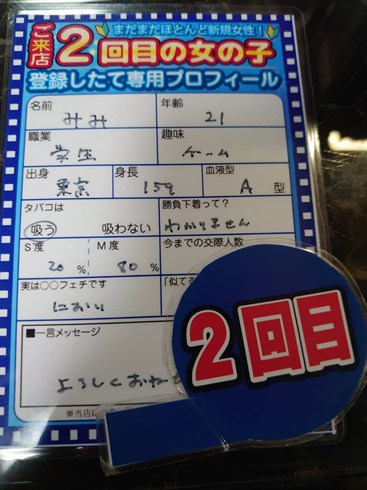 まだまだほとんど新規女性！
ご来店2回目の女の子
登録したて専用プロフィール
名前 みみ 年齢 21
職業 学生 趣味 ゲーム
出身 東京 身長 159 血液型 A 型
タバコは 吸う 吸わない 勝負下着って? わかりません
S度 20 % M度 80 % 今までの交際人数
実は〇〇フェチです におい 「似てる
■一言メッセージ
よろしくおね
※当店に
2回目